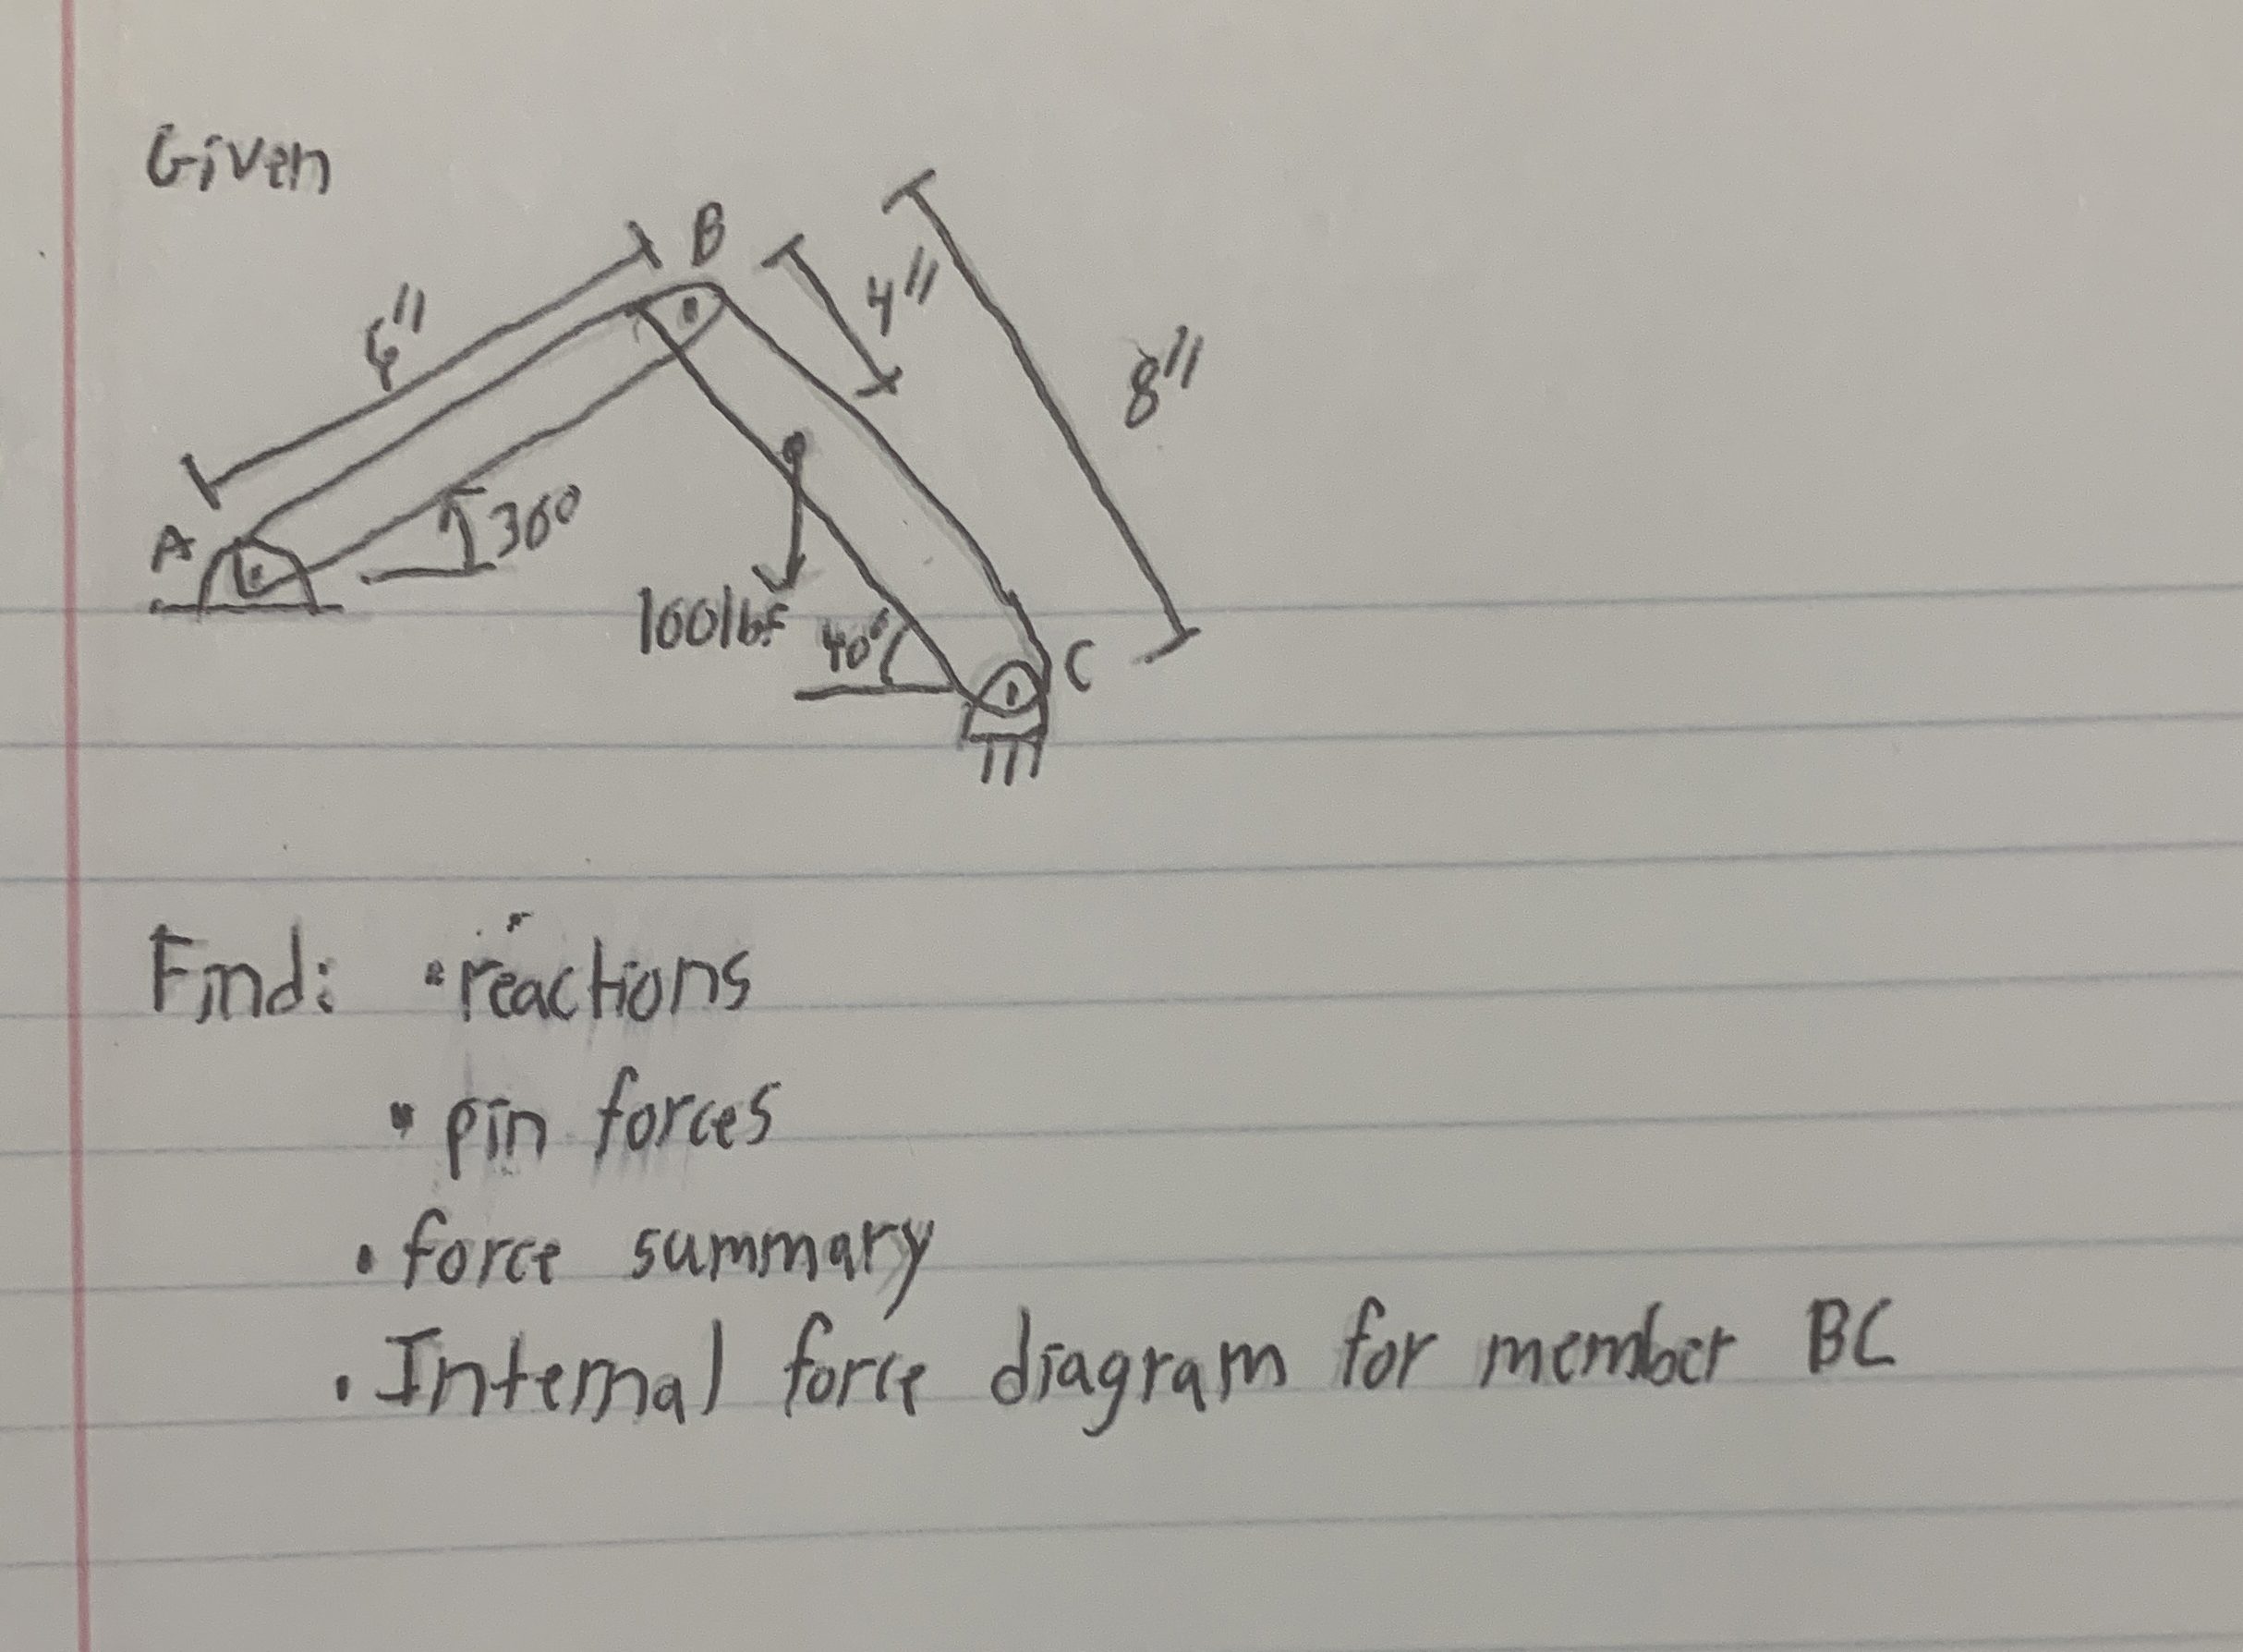 Given
B
4"
6"
8"
A
30°
100lbf
40°
C
Find: • reactions
• pin forces
• force summary
• Internal force diagram for member BC